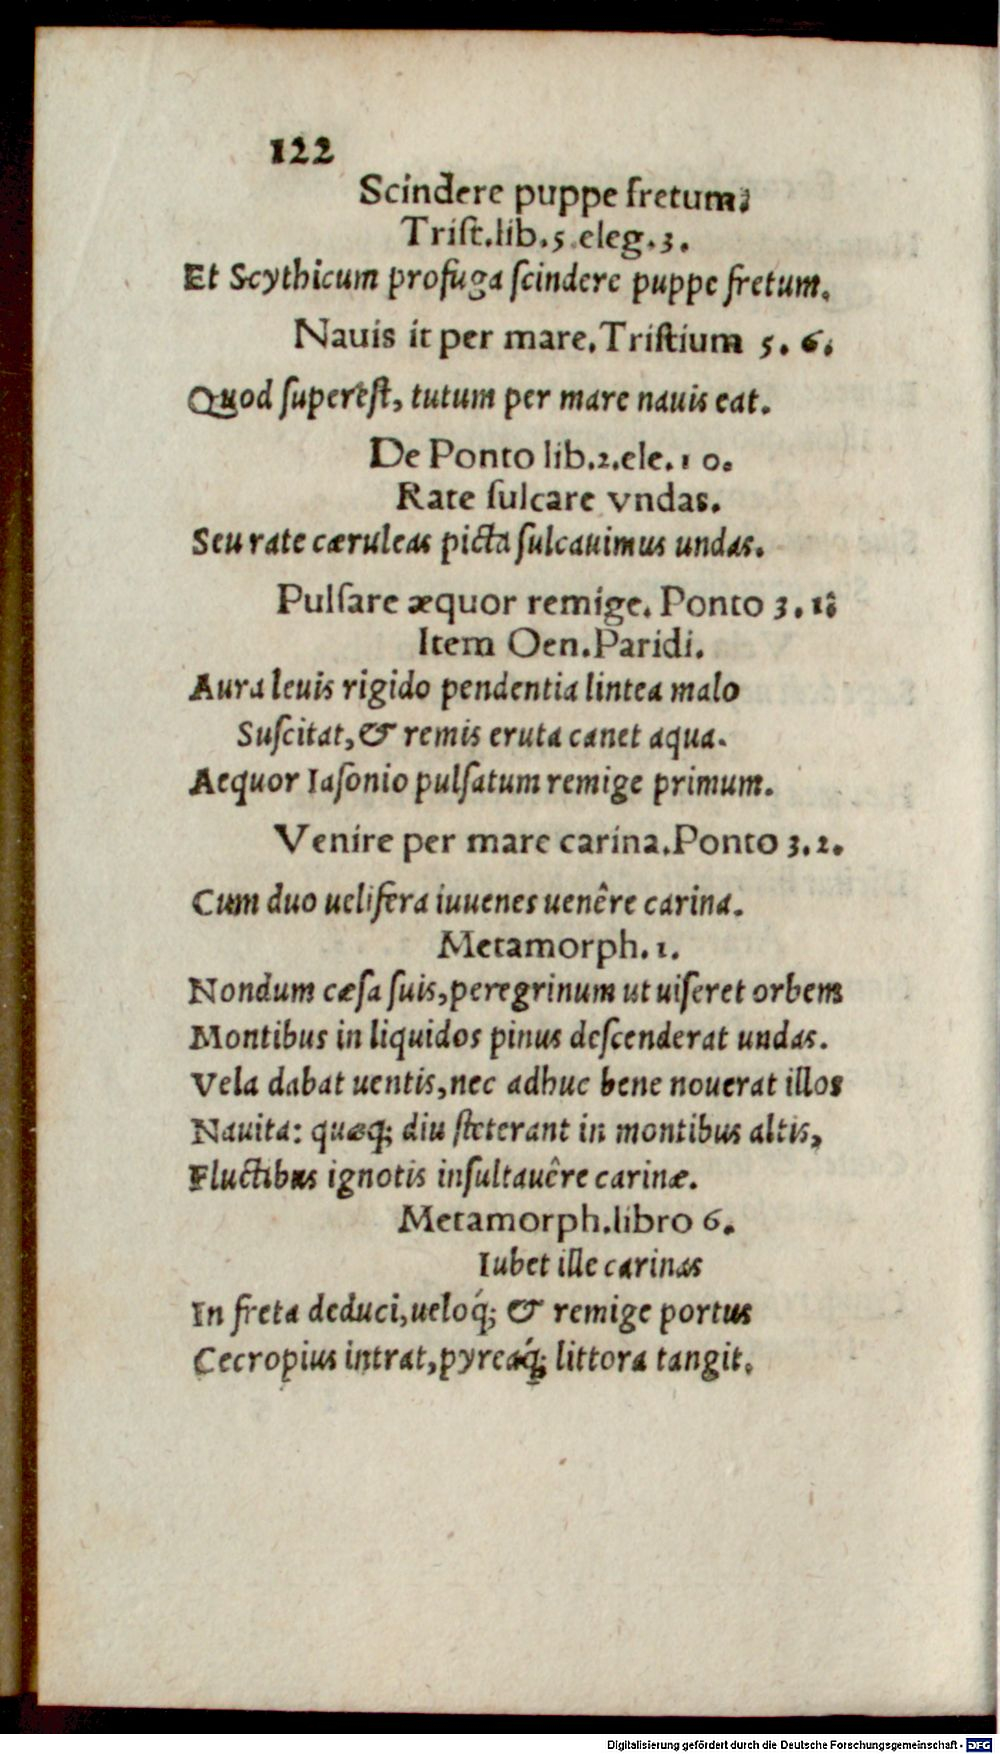 122
Scindere puppe fretum.
Triſt.lib.5.eleg.3.
Et Scythicum profuga ſcindere puppe fretum.
Nauis it per mare.Triſtium 5. 6.
Quod ſupereſt, tutum per mare nauis eat.
De Ponto lib.2.ele.1 0.
Rate ſulcare vndas.
Seu rate cæruleas picta ſulcauimus undas.
Pulſare æquor remige. Ponto 3. 1.
Item Oen.Paridi.
Aura leuis rigido pendentia lintea malo
Suſcitat, & remis eruta canet aqua.
Aequor Iaſonio pulſatum remige primum.
Venire per mare carina.Ponto 3.2.
Cum duo uelifera iuuenes uenêre carina.
Metamorph.1.
Nondum cæſa ſuis, peregrinum ut uiſeret orbem
Montibus in liquidos pinus deſcenderat undas.
Vela dabat uentis, nec adhuc bene nouerat illos
Nauita: quæq; diu ſteterant in montibus altis,
Fluctibus ignotis inſultauêre carinæ.
Metamorph.libro 6.
Iubet ille carinas
In freta deduci, ueloq́; & remige portus
Cecropius intrat, pyreaq́; littora tangit.
Digitalisierung gefördert durch die Deutsche Forschungsgemeinschaft - DFG